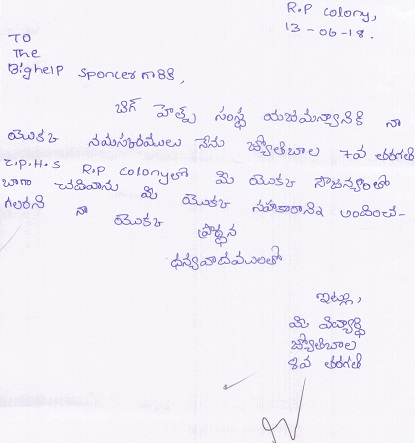 R.P colony,
13-06-18.
TO
The
Bighelp Sponcer గారికి,
బిగ్ హెల్ప్ సంస్థ యజమన్యానికి నా
యొకక నమసకరములు నేను జ్యోతిబాల 7వ తరగతి
Z.P.H.S R.P colonyలో మీ యొకక సౌజన్యంతో
బాగా చదివాను మీ యొకక సహకారాన్ని అందించ-
గలరని నా యొకక ప్రార్థన
ధన్యవాదములతో
ఇట్లు,
మీ విద్యార్థి
జ్యోతిబాల
8వ తరగతి